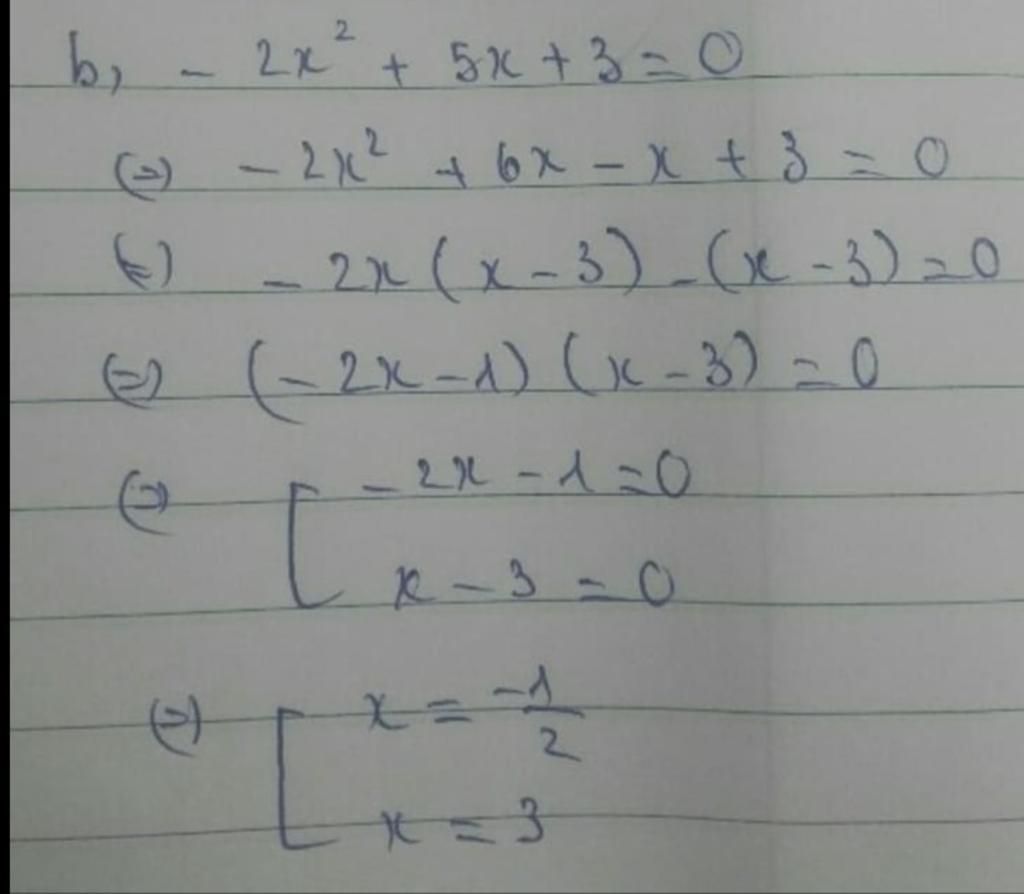 b, - 2x² + 5x + 3 = 0
(=) - 2x² + 6x - x + 3 = 0
(=) - 2x (x - 3) - (x - 3) = 0
(=) (- 2x - 1) (x - 3) = 0
(=) [ - 2x - 1 = 0
x - 3 = 0
(=) [ x = -1/2
x = 3